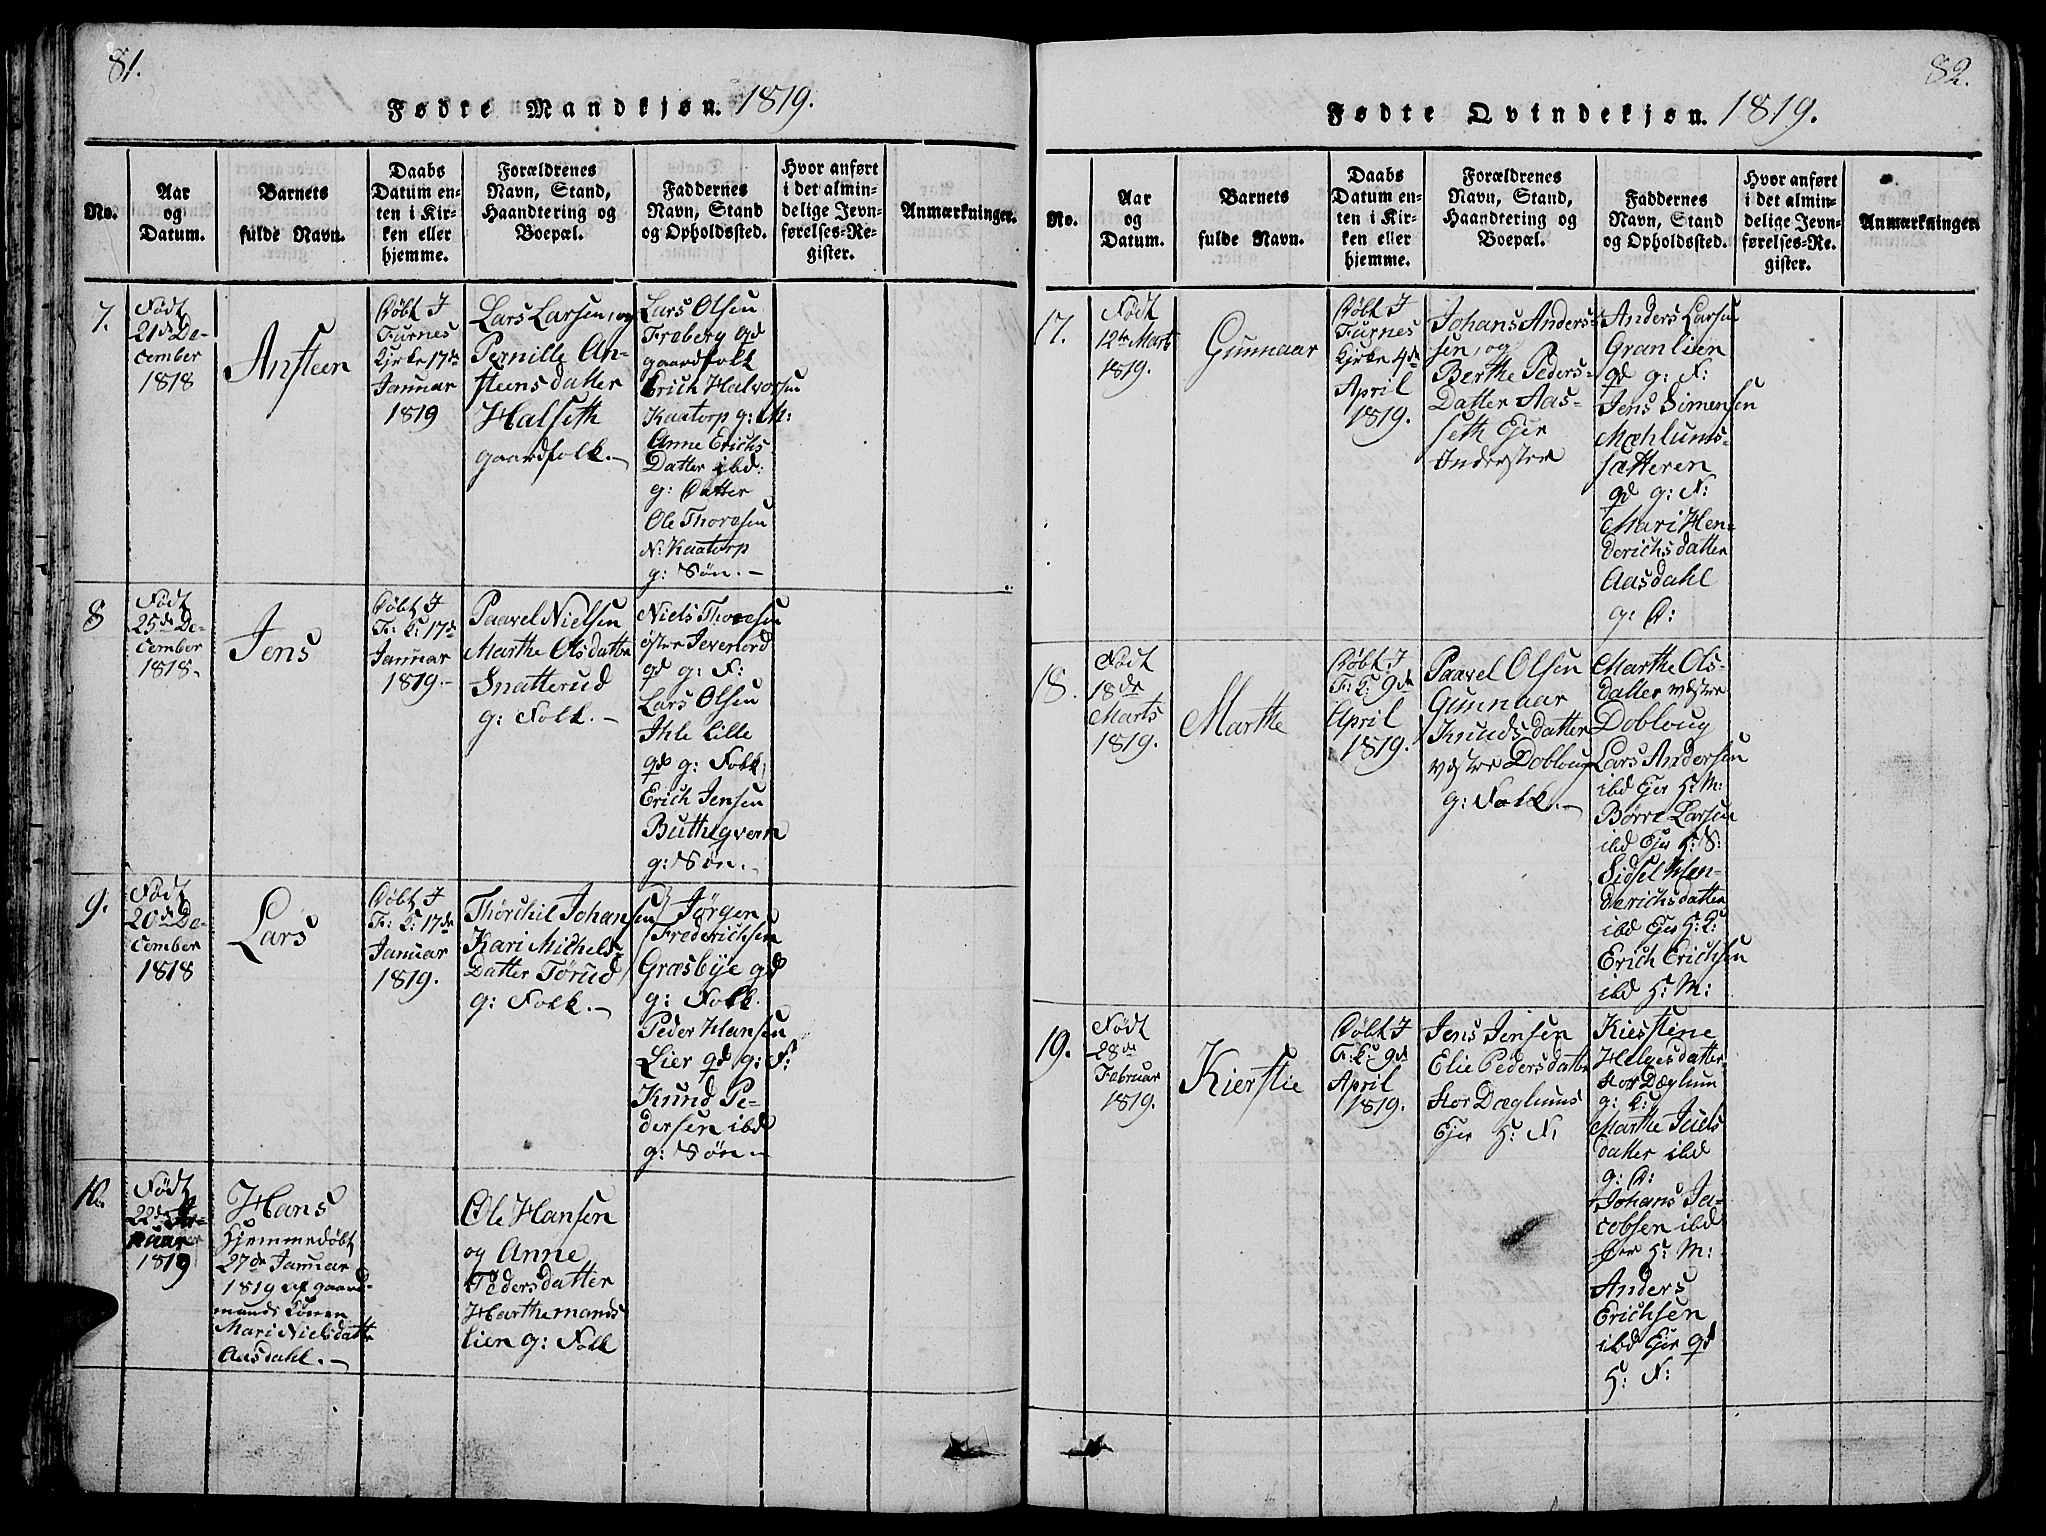 81.
Fødte Mandkjøn. 1819.
No.
Aar
og
Datum.
Barnets
fulde Navn.
Daabs
Datum en-
ten i Kir-
ken eller
hjemme.
Forældrenes
Navn, Stand,
Haandtering og
Boepæl.
Faddernes
Navn, Stand
og Opholdssted.
Hvor anført
i det almin-
delige Jevn-
førelses-Re-
gister.
Anmærkninger.
7.
Født
21de De-
cember
1818
Ansteen
Døbt I
Furnes
Kirke 17de
Januar
1819
Lars Larsen, og
Pernille An-
steensdatter
Halseth
gaardfolk.-
Lars Olsen
Froberg qd
gaardfolk
Erich Halvorsen
Kaatorp g: M:
Anne Erichs
Datter ibd:
g: Datter
Ole Thoresen
N: Kaatorp
g: Søn.-
8
Født
25de De-
cember
1818.
Jens
Døbt I
F: K: 17de
Januar
1819.-
Paavel Nielsen
Marthe Olsdatter
Snatterud
g: Folk.-
Niels Thoresen
øster Jevenord
qd g: F:
Lars Olsen
Ihle Lille
qd g: Folk
Erich Jensen
Buttegvern
g: Søn.-
9.
Født
20de De-
cember
1818
Lars
Døbt I
F: K: 17de
Januar
1819.
Thorchil Johansen
Kari Michels-
Datter Torud
g: Folk.-
Jørgen
Frederichsen
Græsbye qd
g: Folk.
Peder Hansen
Lier qd g: F:
Knud Pe-
dersen ibd
g: Søn.-
10.
Født
22de
1819
Hans
Hjemmedøbt
27de Januar
1819 af gaard-
mands Konen
Mari Nielsdatter
Aasdahl.-
Ole Hansen
og Anne
Pedersdatter
Harthemands
lien g: Folk
82.
Fødte Qvindekjøn. 1819.
No.
Aar
og
Datum.
Barnets
fulde Navn.
Daabs
Datum en-
ten i Kir-
ken eller
hjemme.
Forældrenes
Navn, Stand,
Haandtering og
Boepæl.
Faddernes
Navn, Stand
og Opholdssted.
Hvor anført
i det almin-
delige Jevn-
førelses-Re-
gister.
Anmærkninger
17.
Født
12te Marts
1819.
Gunnaar
Døbt I
Furnes
Kirke 4de
April
1819.
Johans Anders-
sen, og
Berthe Peders-
Datter Aas-
seth Ejer
Inderster
Anders Larsen
Granlien
qd g: F:
Jens Simensen
Mæhlums-
sætteren
qd g: F:
Mari Hen-
derichsdatter
Aasdahl
g: D:
18.
Født
18de
Marts
1819.
Marthe
Døbt I
F: K: 9de
April
1819.
Paavel Olsen
Gunnaar
Knudsdatter
vestre Dobloug
g: Folk.-
Marthe Ols-
datter vestre
Dobloug
Lars Andersen
ibd Ejer H: M:
Børre Larsen
ibd Ejer H: S:
Sidsel Hen-
derichsdatter
ibd Ejer H: K:
Erich Erichsen
ibd H: M:
19.
Født
28de
Februar
1819.
Kierstie
Døbt I
F: K: 9de
April
1819.
Jens Jensen
Elie Pedersdatter
Stor Dæglums
Ejer H: F:
Kierstene
Helgesdatter
Stor Dæglum
g: K:
Marthe Juels
datter ibd
g: D:
Johans Ja-
cobsen ibd
Ejer H: M:
Anders
Erichsen
ibd Ejer qd
H: F: